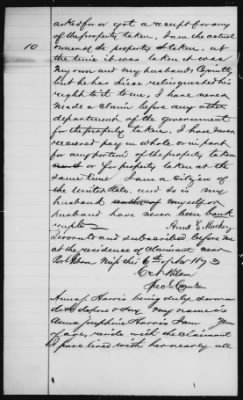 asked for or got a receipt for any
of the property taken, I am the actual
10 owner of the property so taken. at
the time it was taken it was
my own and my husbands jointly
but he has since relinquished his
right to it to me, I have never
made a claim before any other
department of the government
for the property taken. I have never
received pay in whole or in part
for any portion of the property take
or for property taken at the
same time I am a citizen of
the United States. and so is my
husband myself or
husband have never been bank
rupts
Sworn to and subscribed before me
at the residence of Claimant near
Miss this 6th of Nov 1873
Anna J Harris being duly sworn
depose & say my name is
Anna Josephine Harris I am
of age, reside with the Claimant
& have lived with her nearly all